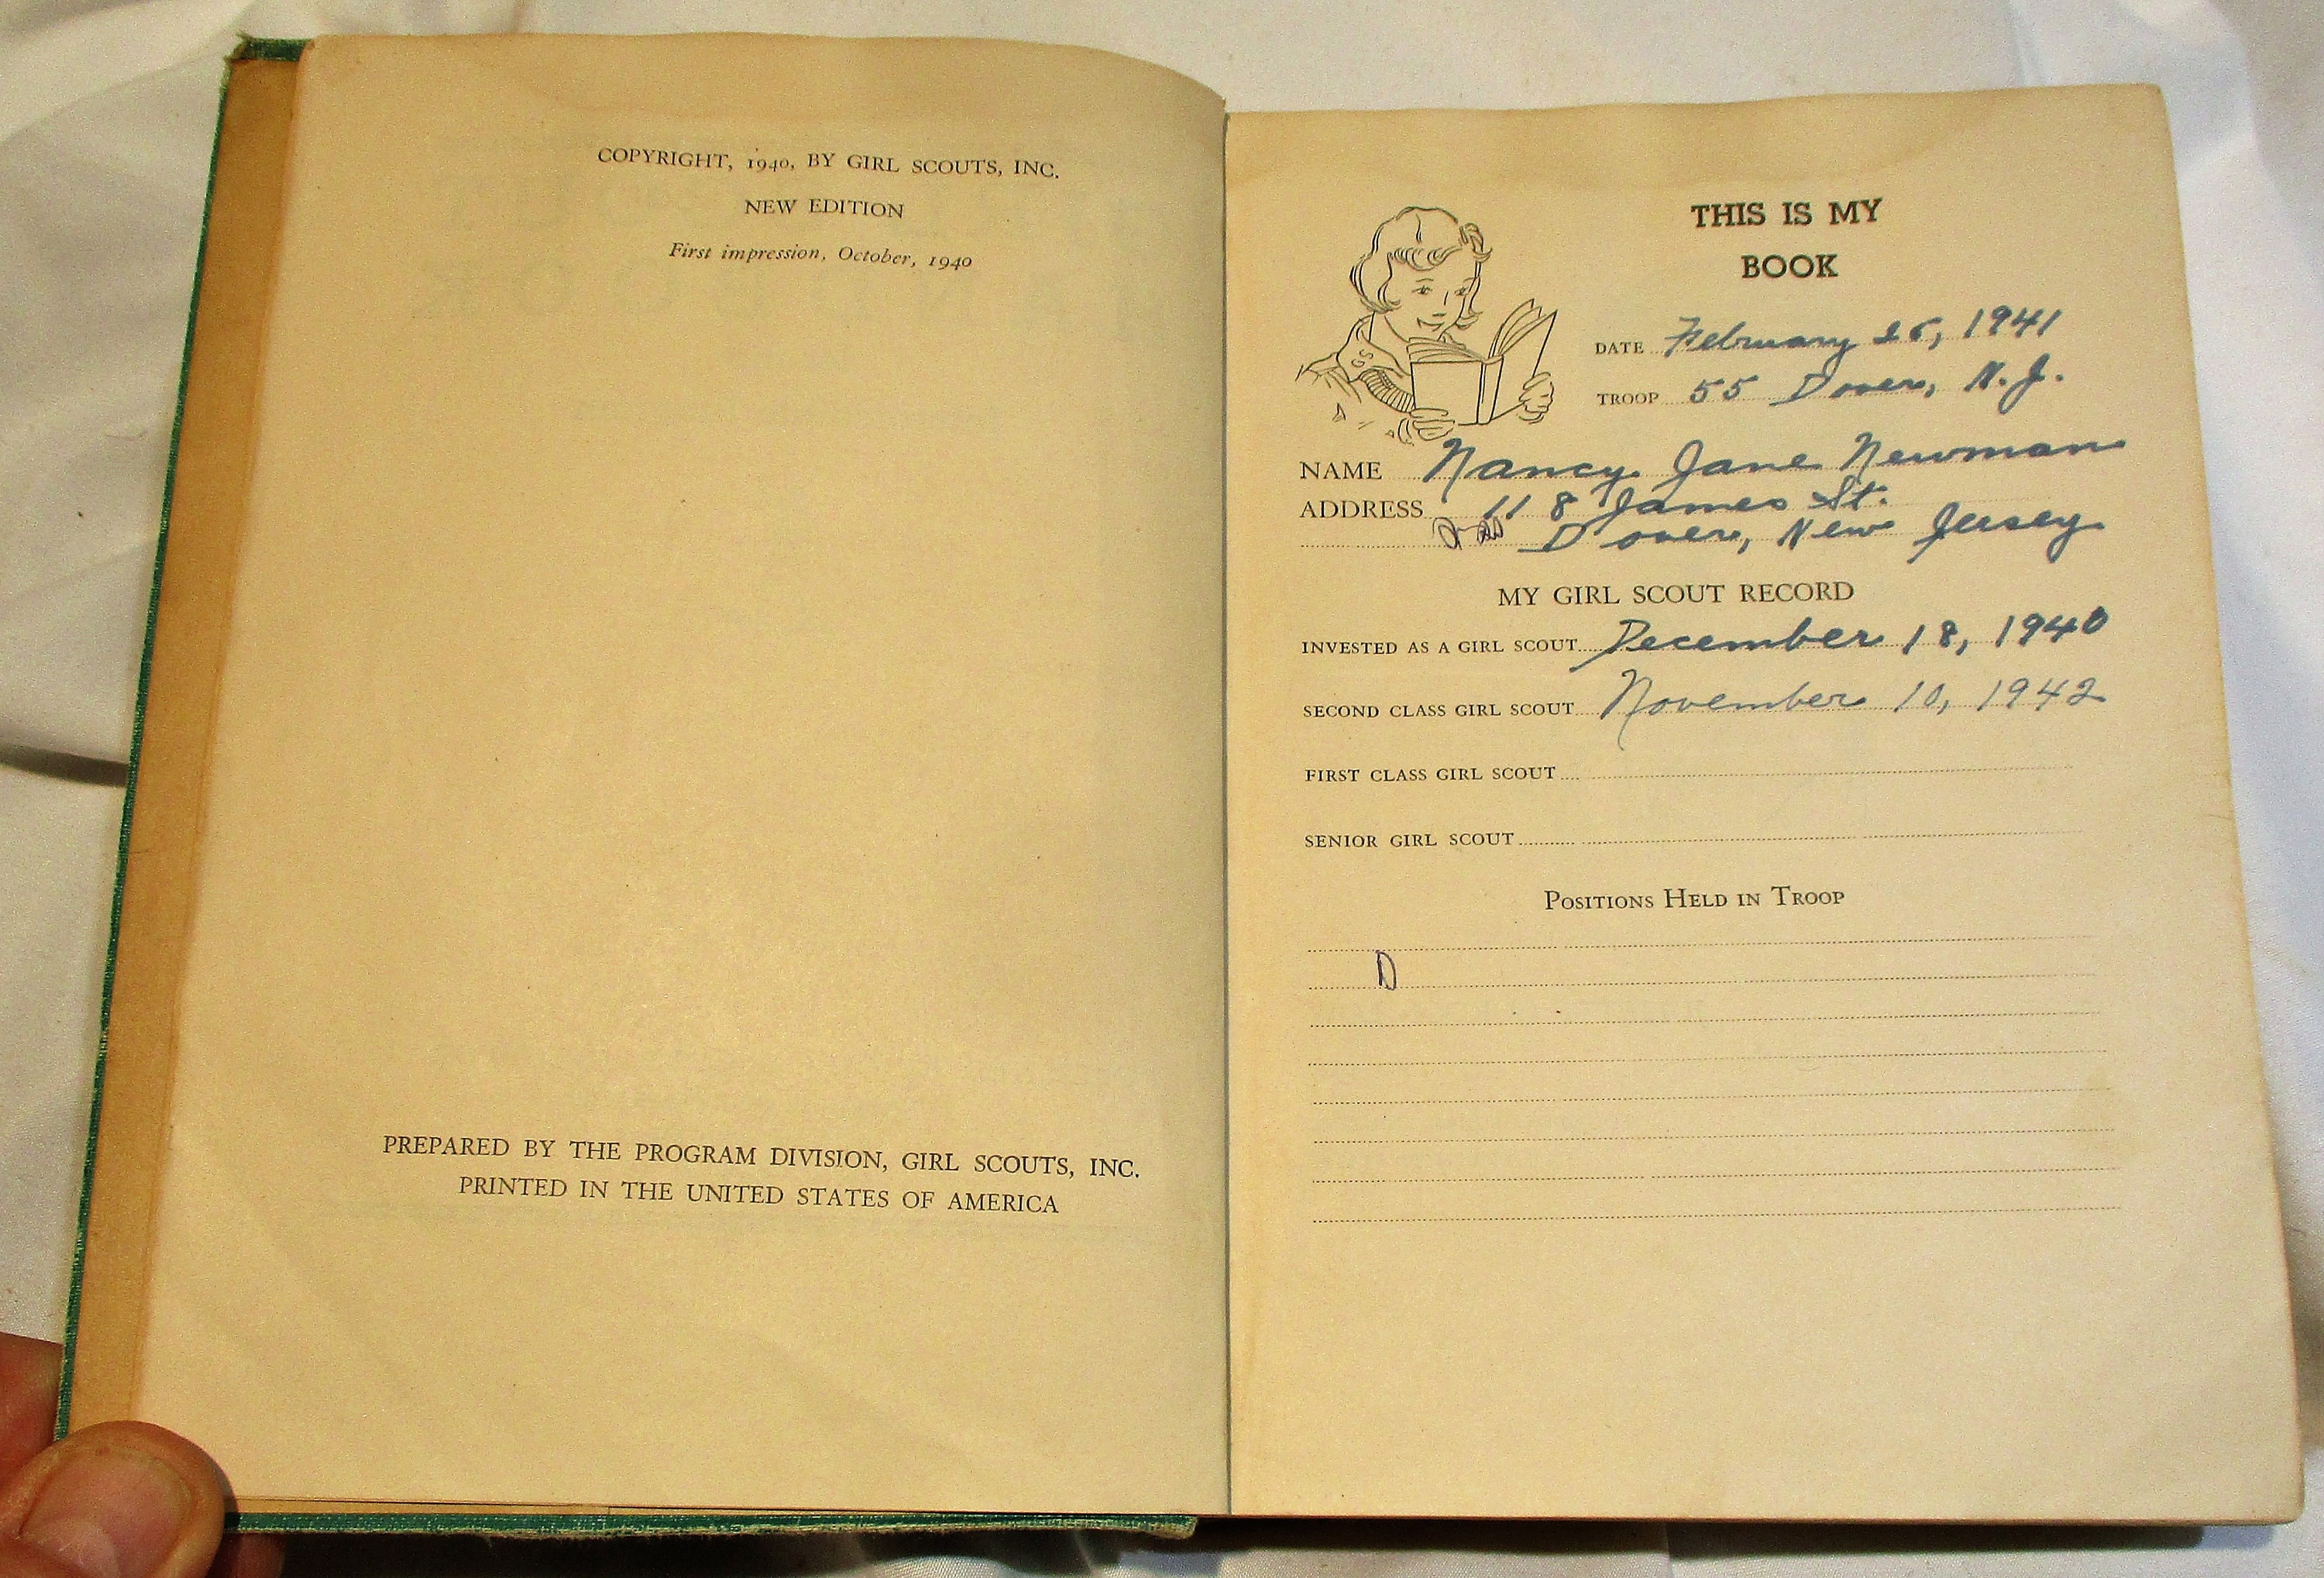 COPYRIGHT, 1940, BY GIRL SCOUTS, INC.
NEW EDITION
First impression, October, 1940
PREPARED BY THE PROGRAM DIVISION, GIRL SCOUTS, INC.
PRINTED IN THE UNITED STATES OF AMERICA
THIS IS MY
BOOK
GS
DATE February 1941
TROOP 55 Dover, N.J.
NAME Nancy Jane Newman
ADDRESS 118 James St.
Dover, New Jersey
MY GIRL SCOUT RECORD
INVESTED AS A GIRL SCOUT December 18, 1940
SECOND CLASS GIRL SCOUT November 10, 1942
FIRST CLASS GIRL SCOUT
SENIOR GIRL SCOUT
POSITIONS HELD IN TROOP
D